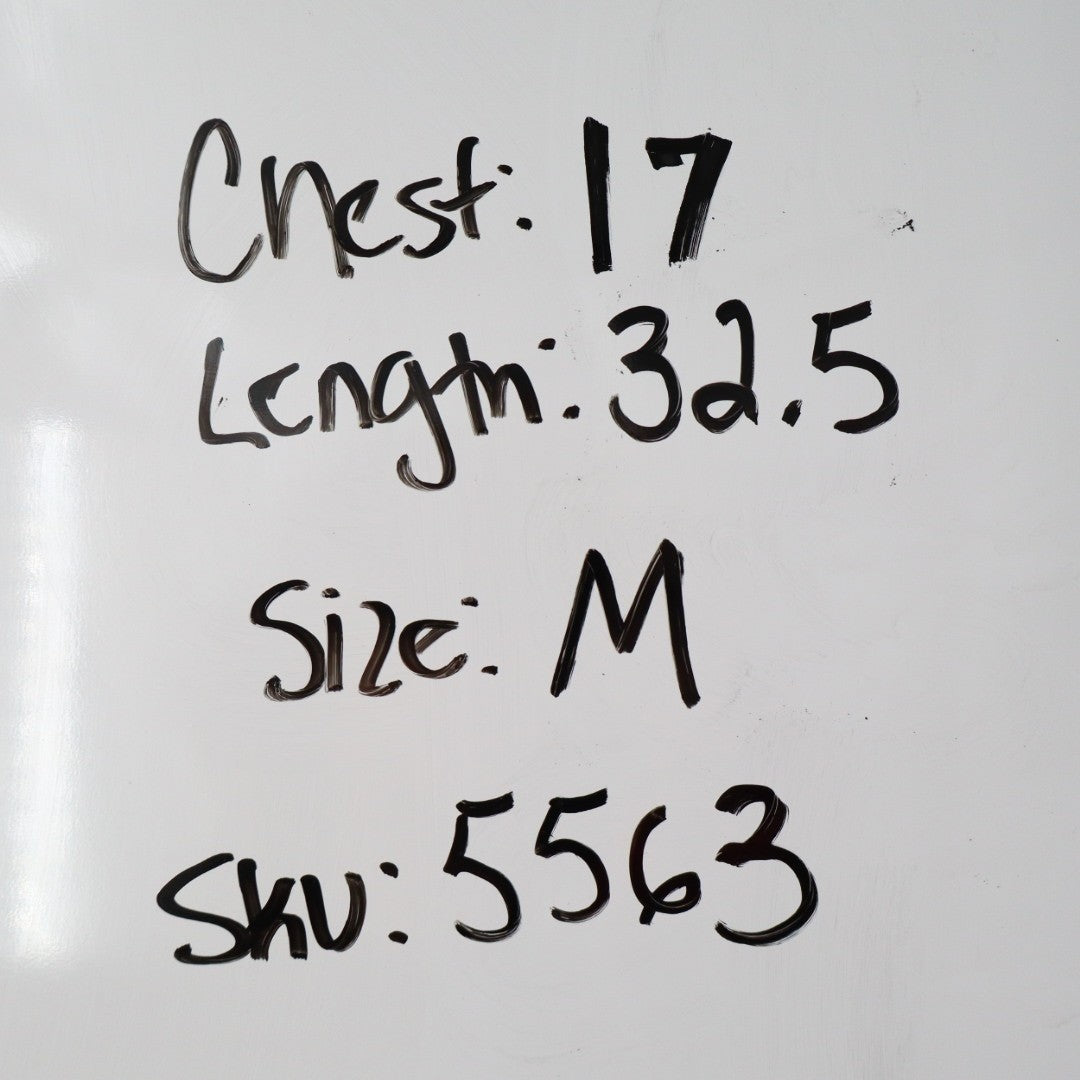 Chest: 17
Length: 32.5
Size: M
Sku: 5563